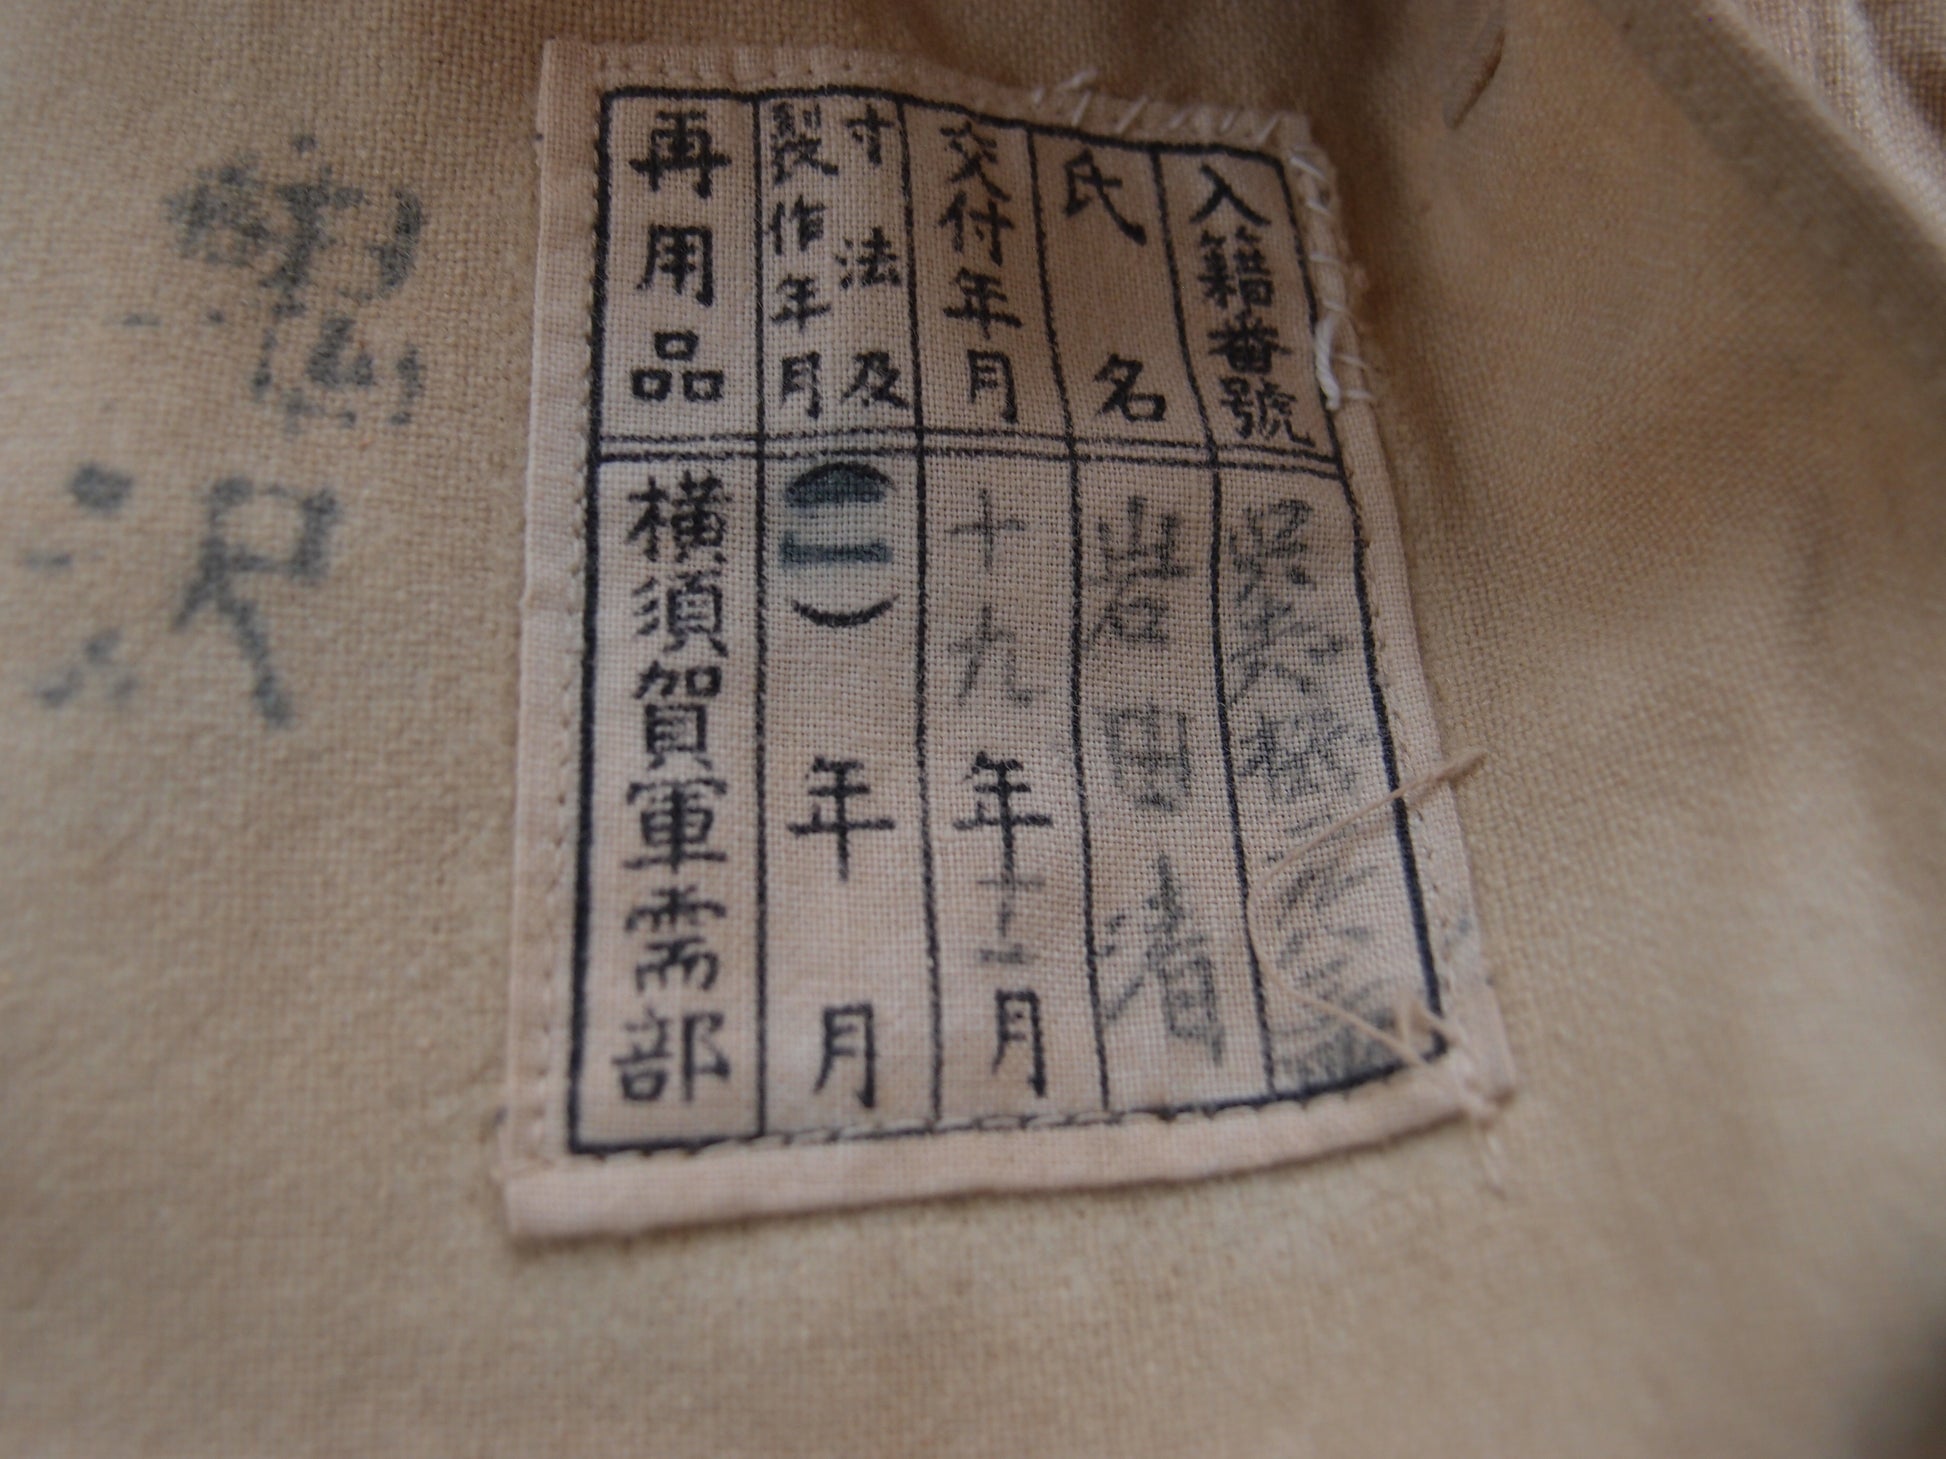 入籍番號
氏名 岩田清
交付年月 十九年十二月
寸法及
製作年月 (二) 年 月
再用品 横須賀軍需部
沢